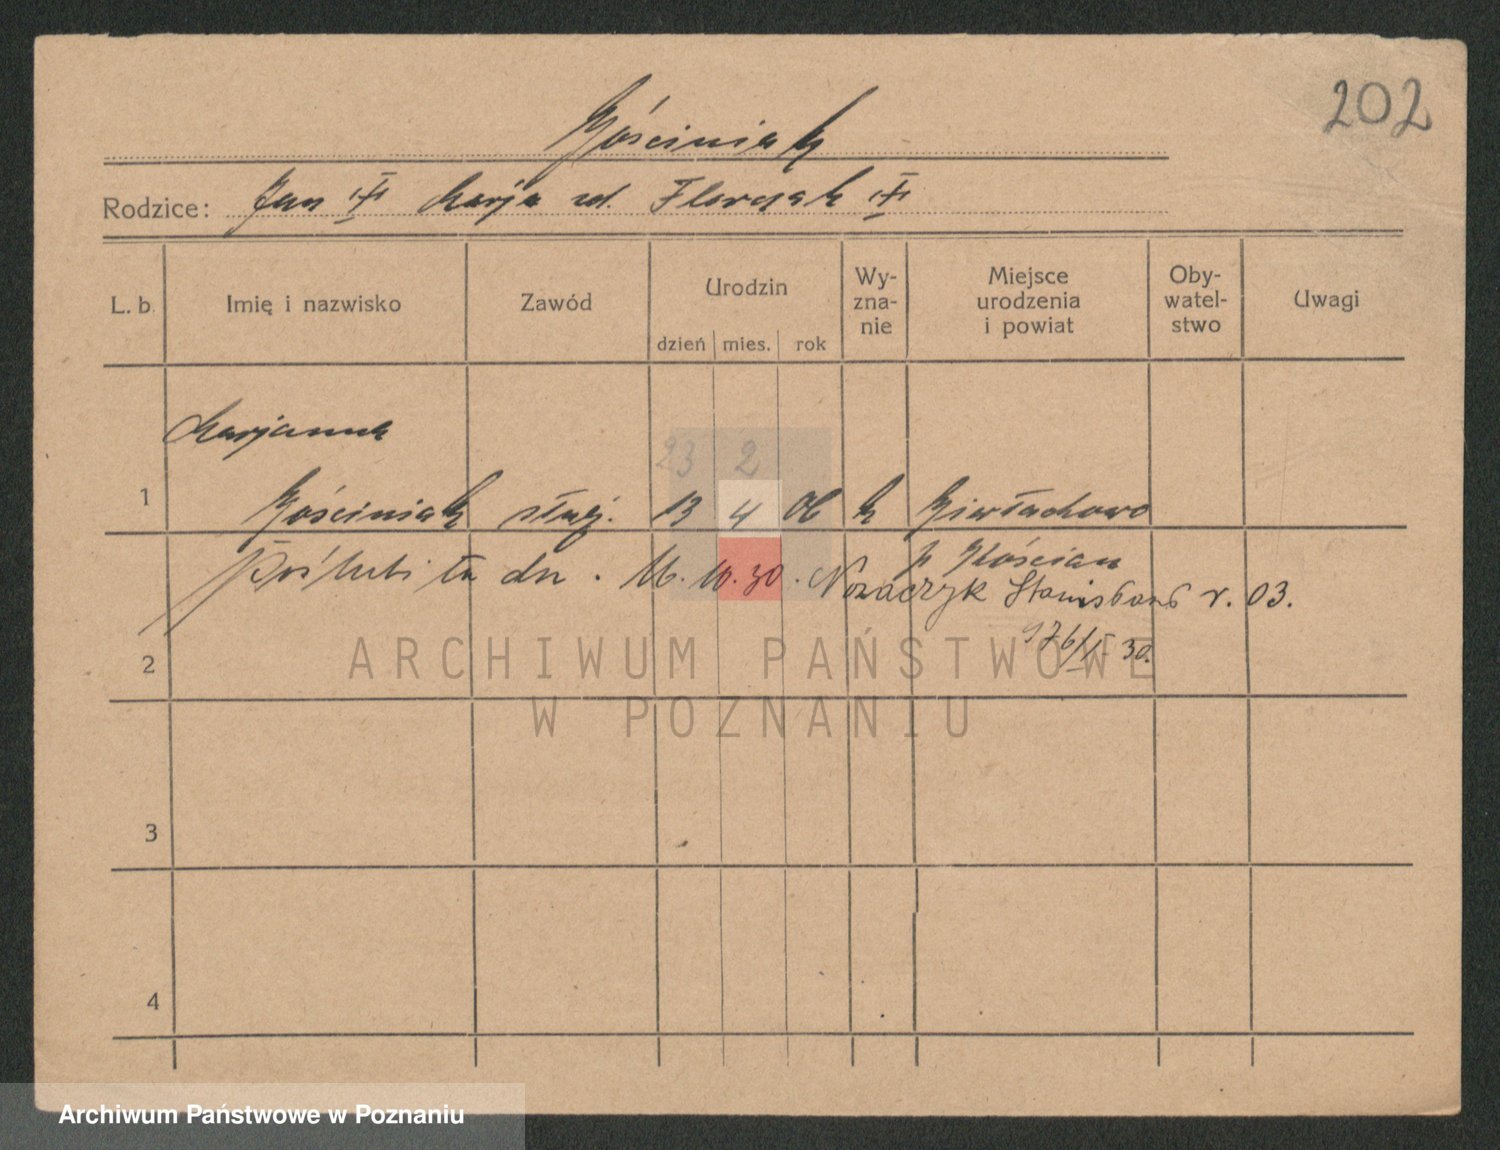 202
Kościniak
Rodzice: Jan Marja zd. Florczak
L. b. Imię i nazwisko Zawód Urodzin dzień mies. rok Wy-zna-nie Miejsce urodzenia i powiat Oby-watel-stwo Uwagi
Marjanna
23 2
1 Kościniak służ. 13 4 06 k
p Kościan
Poślubiła dn. 16.10.30. Nozaczyk Stanisław r. 03.
976/I 30.
2
ARCHIWUM PAŃSTWOWE
W POZNANIU
3
4
Archiwum Państwowe w Poznaniu